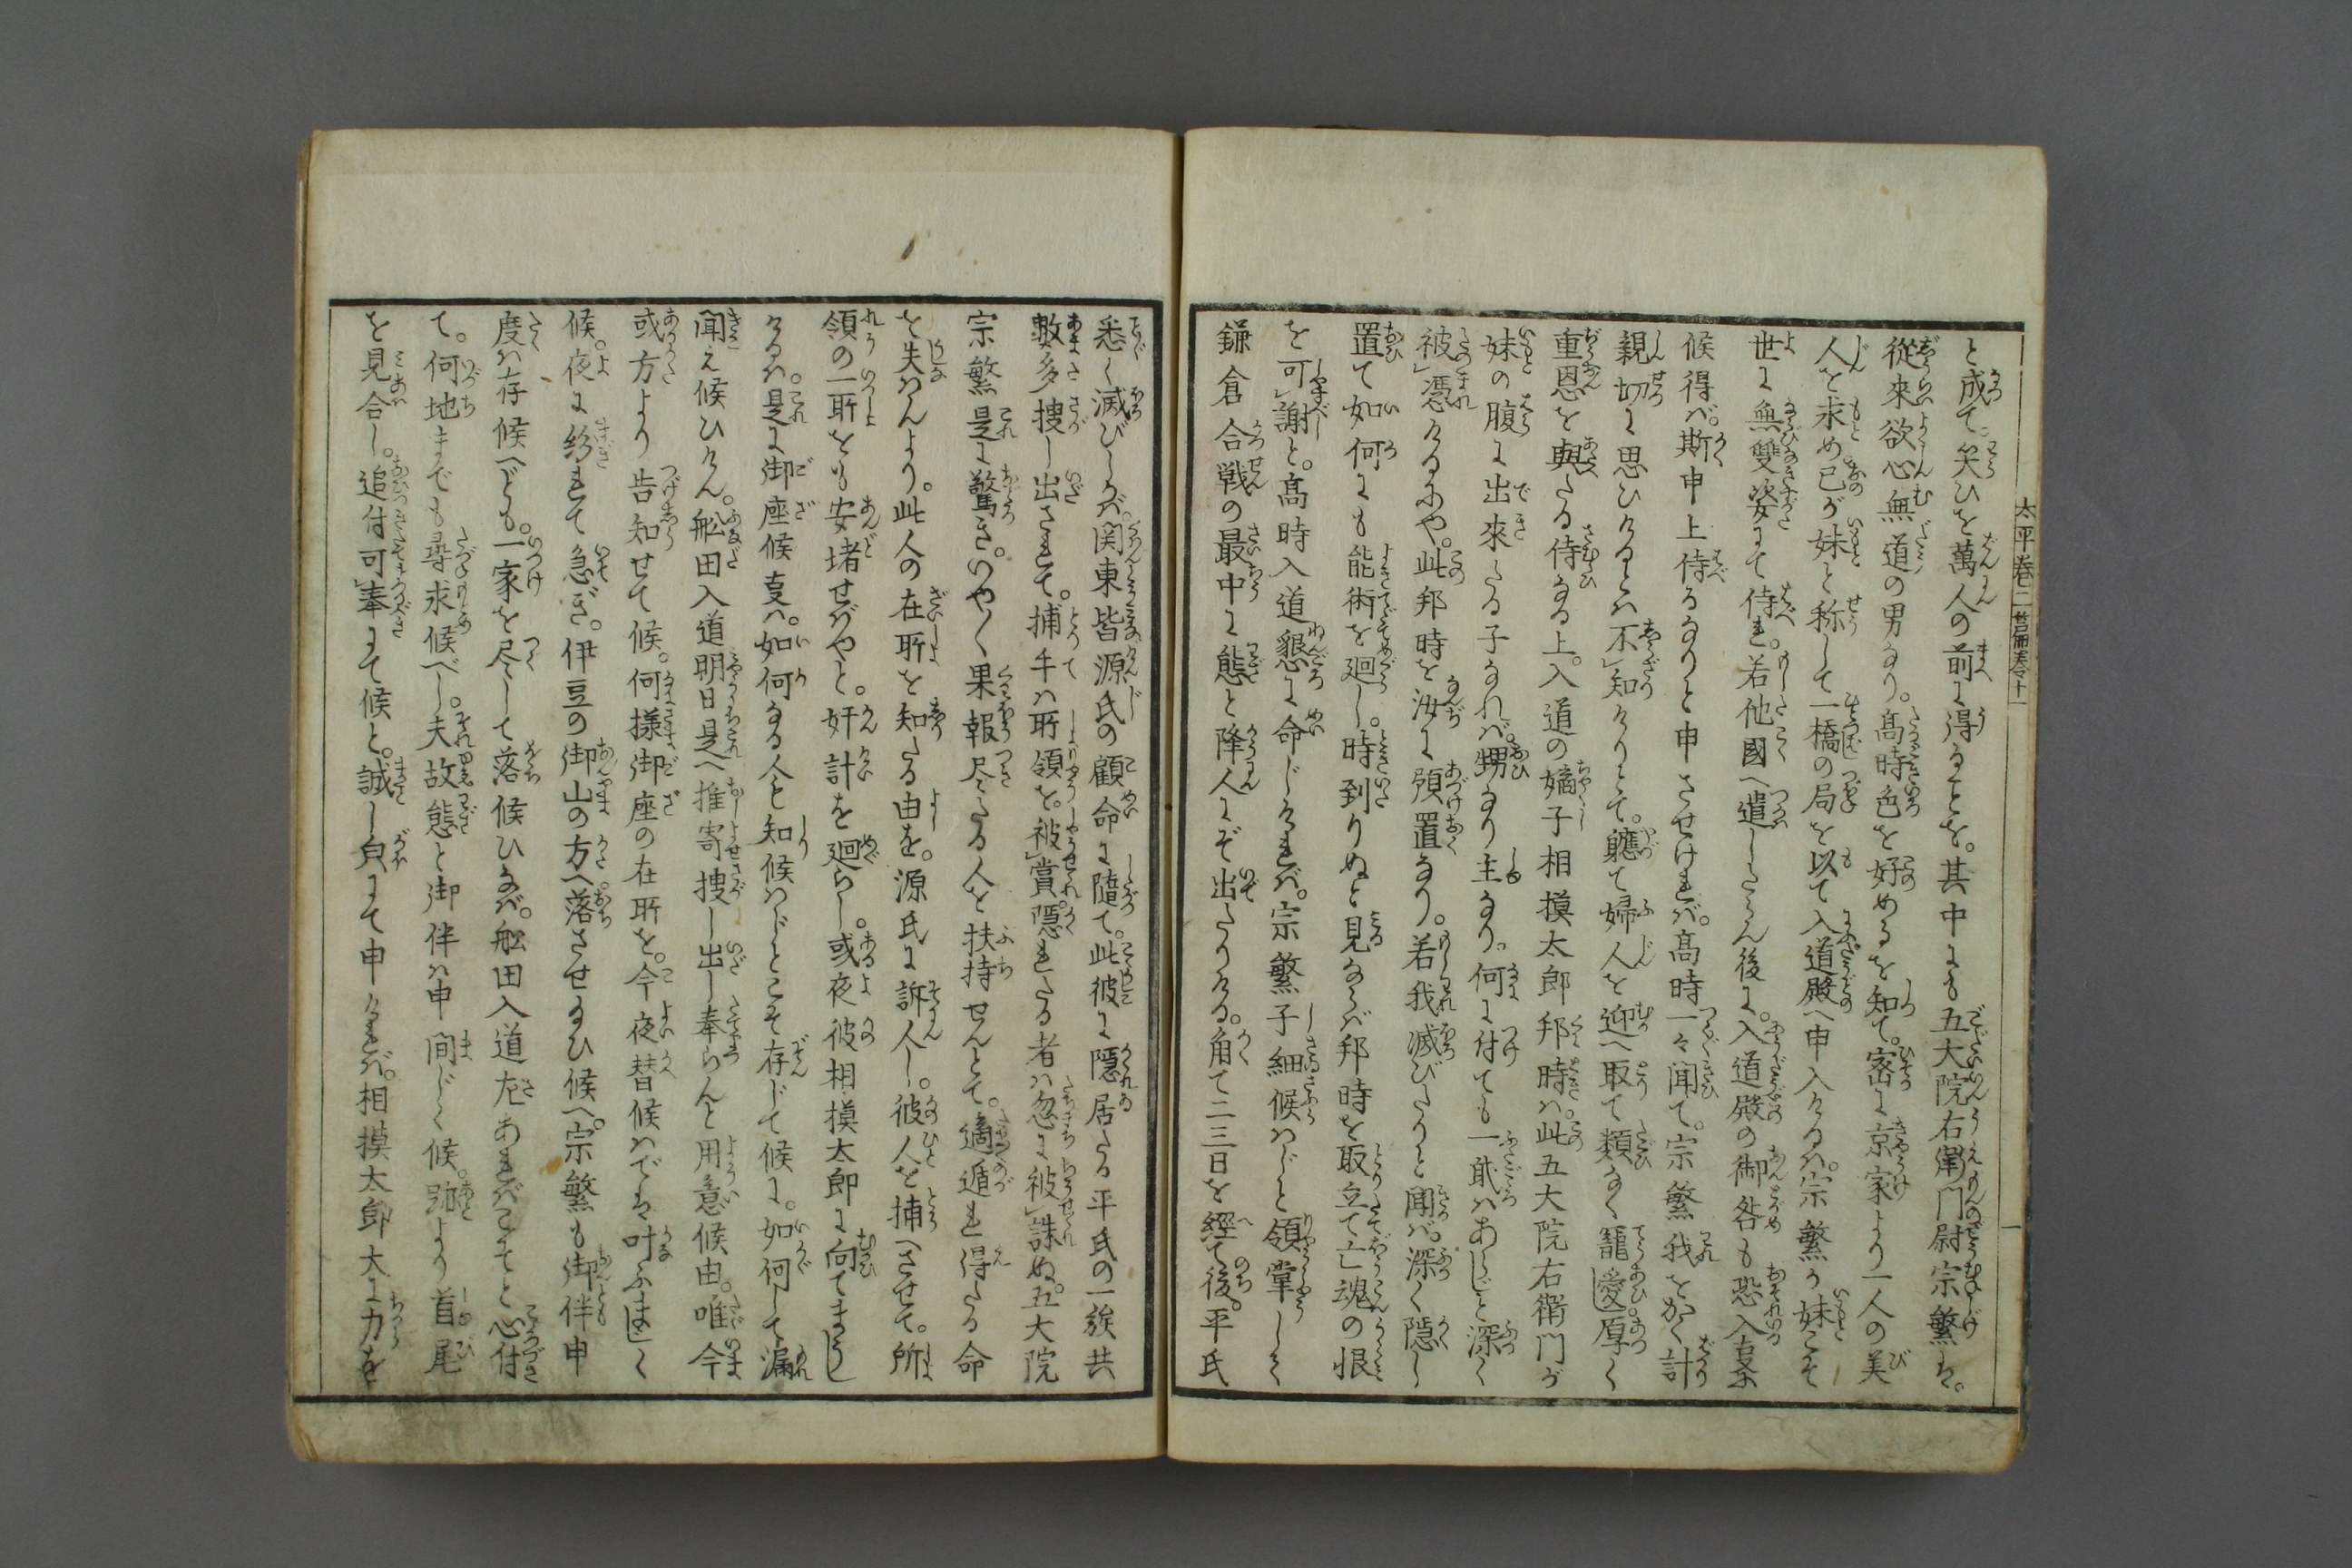 太平巻二
と成て。笑ひを萬人の前に得ることを。其中にも五大院右衛門尉宗繁は。
從來欲心無道の男なり。髙時色を好めるを知て。密に京家より一人の美
人を求め。己が妹と称して一橋の局を以て入道殿へ申入けるは。宗繁が妹こそ
世に無雙姿にて侍れ。若他國へ遣したらん後に。入道殿の御咎も恐入
候得ば。斯申上侍るなりと申させければ。髙時一々聞て。宗繁我をかく計
親切に思ひけるとは不知けりとて。軈て婦人を迎へ取て類なく寵愛し。厚く
重恩を與たる侍なる上。入道の嫡子相摸太郎邦時は。此五大院右衛門が
妹の腹に出來たる子なれば。甥なり主なり。何に付ても一貮はあらじと深く
被憑けるにや。此邦時を汝に預置なり。若我滅びたりと聞ば。深く隠し
置て如何にも能術を廻し。時到りぬと見ならば邦時を取立て亡魂の恨
を可謝と。髙時入道懇に命じければ。宗繁子細候はじと領掌しく
鎌倉合戦の最中に態と降人にぞ出たりける。角て二三日を經て後。平氏
一
悉く滅びしかば。関東皆源氏の顧命に隨て。此彼に隠居たる平氏の一族共
數多捜し出されて。捕手は所領を被賞。隠れたる者は忽に被誅ぬ。五大院
宗繁是に驚き。いやく果報尽たる人を扶持せんとて。適遁れ得たる命
を失はんより。此人の在所を知たる由を。源氏に訴人し。彼人を捕へさせて。所
領の一所をも安堵せばやと。奸計を廻らし。或夜彼相摸太郎に向てまうし
けるは。是に御座候事は。如何なる人も知候はじとこそ存じて候に。如何して漏
聞え候ひけん。舩田入道明日是へ推寄捜し出し奉らんと用意候由。唯今
或方より告知せて候。何様御座の在所を。今夜替候はでは叶ふまじく
候。夜に紛れて急ぎ。伊豆の御山の方へ落させ給ひ候へ。宗繁も御伴申
度は存候へども。一家を尽して落候ひなば。舩田入道左あればこそと心付
て。何地までも尋求候べし。夫故態と御伴は申間じく候。跡より首尾
を見合し。追付可奉にて候と。誠し皃にて申ければ。相摸太郎大に力を